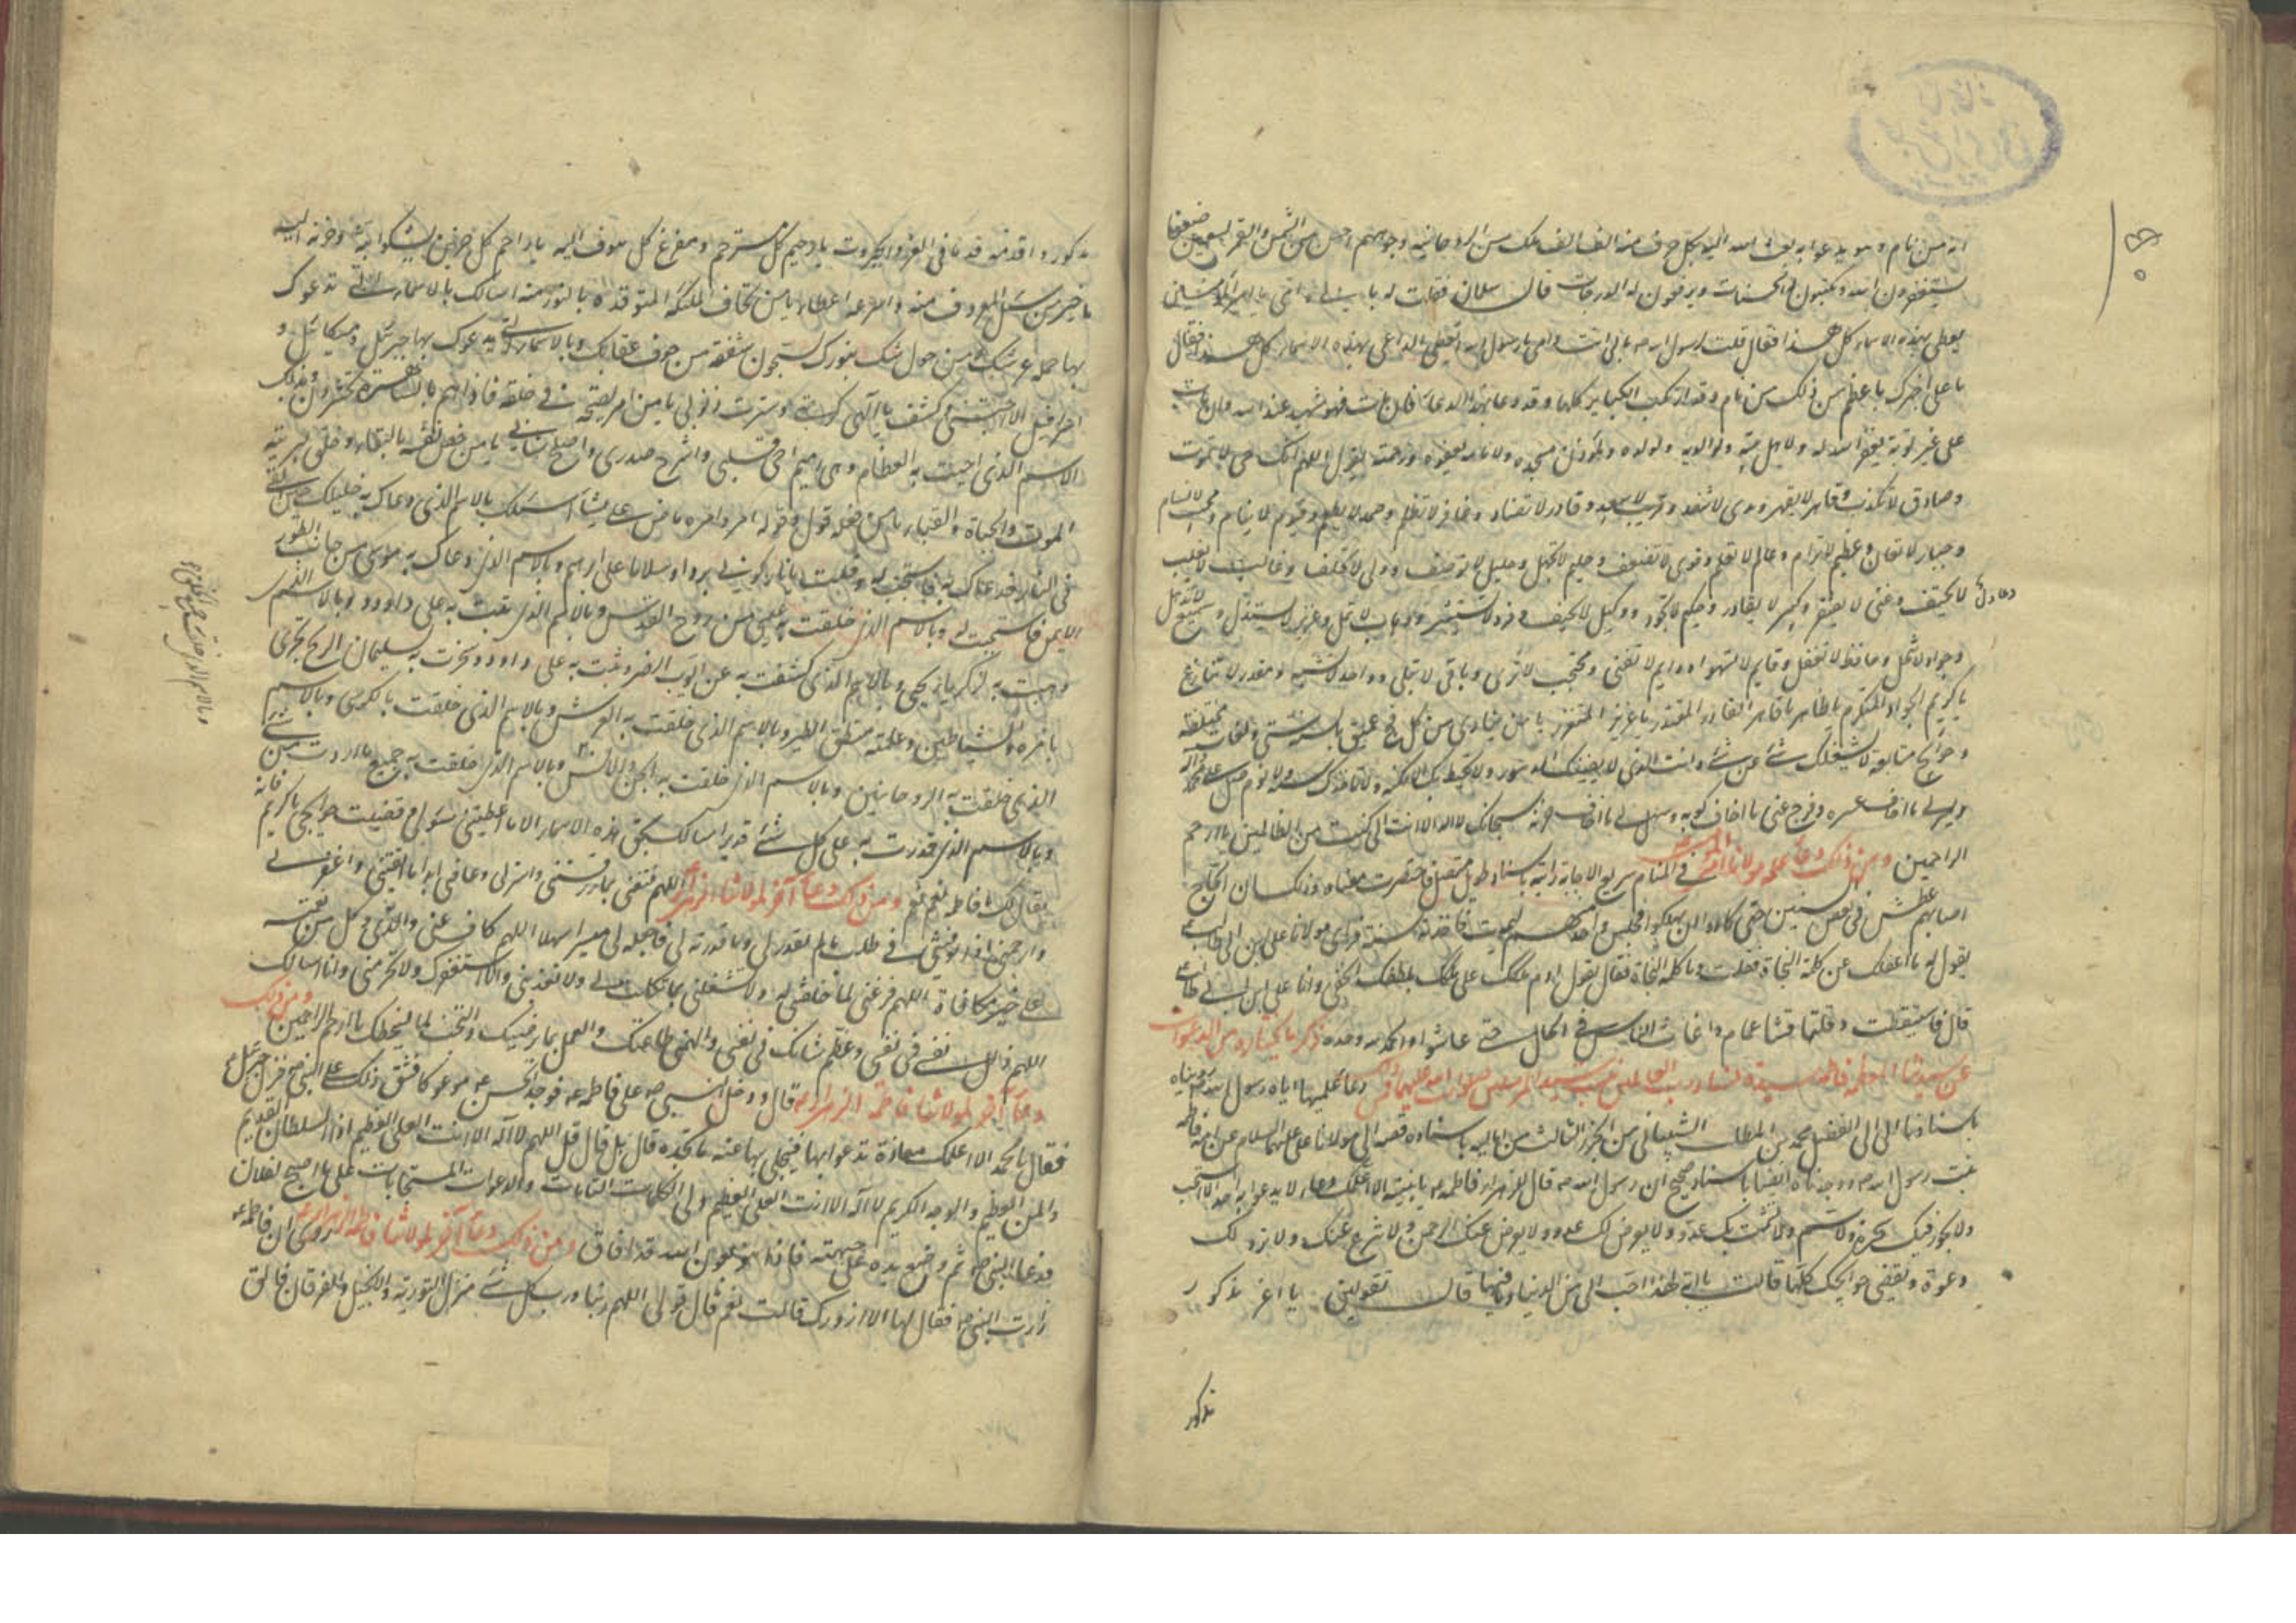 انه من نام وهو يدعو به بعث الله اليه بكل حرف منه الف الف ملك من الروحانية وجوههم احسن من الشمس والقمر بسبعين ضعفا
يستغفرون الله ويكتبون له الحسنات ويرفعون له الدرجات قال سلمان فقلت له بابي انت وامي يا امير المؤمنين
يعطى بهذه الاسماء كل هذا فقال قلت لرسول الله ص بابي انت وامي يا رسول الله ايعطى الداعي بهذه الاسماء كل هذا فقال
يا علي اخبرك باعظم من ذلك من نام وقد ارتكب الكباير كلها وقد دعا بهذا الدعا فان مات فهو شهيد عند الله وان مات
على غير توبة يغفر الله له ولاهل بيته ولوالديه ولولده ولمؤذن مسجده ولامامه بعفوه ورحمته يقول اللهم انك حي لا تموت
وصادق لا تكذب وقاهر لا يقهر وبدى لا تنفد وقريب لا تبعد وقادر لا تضاد وغافر لا تظلم وصمد لا يطعم وقيوم لا ينام ومجيب لا تسام
وجبار لا تعان وعظيم لا ترام وعالم لا تعلم وقوي لا تضعف وحليم لا تجهل وجليل لا توصف ووفي لا تخلف وغالب لا تغلب
وعادل لا تحيف وغني لا يفتقر وكبير لا يغادر وحكيم لا تجور ووكيل لا تحيف وفرد لا تستشير ووهاب لا تمل وعزيز لا يستذل وسميع لا تذهل
وجواد لا تبخل وحافظ لا تغفل وقايم لا تسهو ودايم لا تفنى ومحتجب لا ترى وباقي لا تبلى وواحد لا تشبه ومقتدر لا تنازع
يا كريم الجواد المتكرم يا ظاهر يا قاهر القادر المقتدر يا عزيز المتعزز يا من ينادى من كل فج عميق بالسنة شتى ولغات مختلفة
وحوائج متتابعة لا يشغلك شئ عن شئ وانت الذي لا يفنيك الدهور ولا تحيط بك الامكنة ولا تاخذك سنة ولا نوم صل على محمد وآله
ويسر لي ما اخاف عسره وفرج عني ما اخاف كربه وسهل لي ما اخاف حزنه سبحانك لا اله الا انت اني كنت من الظالمين يا ارحم
الراحمين ومن ذلك دعا علمه مولانا امير المؤمنين في المنام سريع الاجابة راينه باسناد طويل متصل فاختصرت معناه وذلك ان الحجاج
اصابهم عطش في بعض سنين حتى كادوا ان يهلكوا فجلس واحد منهم ليموت فاخذته سنة فراى مولانا علي ابن ابي طالب ع
يقول له ما اغفلك عن كلمة النجاة فقلت وما كلمة النجاة فقال تقول ادم ملكك على ملكك بلطفك الخفي وانا علي ابن ابي طالب
قال فاستيقظت وقلتها فنشا غمام واغاث الناس في الحال حتى عاشوا والحمد لله وحده ذكر ما نختاره من الدعوات
عن سيدتنا المعظمة فاطمة سيدة نساء رب العالمين بنت سيد المرسلين صلوات الله عليهما فمن ذلك دعا علمها اياه رسول الله ص رويناه
باسنادنا الى ابي الفضل محمد بن المطلب الشيباني من الجزء الثالث من اماليه باسناده قصه الى مولانا علي عليهما السلام عن امه فاطمة
بنت رسول الله ص ووجدناه ايضا باسناد صحيح ان رسول الله ص قال للزهراء فاطمة ع يا بنية الا اعلمك دعاء لا يدعو به احد الا استجيب
ولا يجوز فيك سحر ولا سم ولا تشمت بك عدو ولا يعرض لك عدو ولا يعرض عنك الرحمن ولا ينزع عنك ولا ترد لك
دعوة وتقضى حوايجك كلها قالت يا ابه لهذا احب الي من الدنيا وما فيها قال تقولين يا اعز مذكور
مذكور
مذكور واقدمه قدما في العز والجبروت يا رحيم كل مسترحم ومفزع كل ملهوف اليه يا راحم كل حزين يشكو ابثه وحزنه اليه
يا خير من سئل المعروف منه واسرعه اعطاء يا من تخاف الملئكة المتوقدة بالنور منه اسالك بالاسماء التي تدعوك
بها حملة عرشك ومن حول عرشك بنورك يسبحون شفقة من خوف عقابك وبالاسماء التي يدعوك بها جبرئيل وميكائيل و
اسرافيل الا اجبتني وكشفت يا الهي كربتي وسترت ذنوبي يا من امر بالصيحة في خلقه فاذا هم بالساهرة يحشرون وبذلك
الاسم الذي احييت به العظام وهي رميم احي قلبي واشرح صدري واصلح شاني يا من خص نفسه بالبقاء وخلق لبريته
الموت والحياة والفناء يا من فعله قول وقوله امر وامره ماض على ما يشاء اسئلك بالاسم الذي دعاك به خليلك حين القي
في النار فدعاك به فاستجبت له وقلت يا نار كوني بردا وسلاما على ابرهيم وبالاسم الذي دعاك به موسى من جانب الطور
الايمن فاستجبت له وبالاسم الذي خلقت به عيسى من روح القدس وبالاسم الذي تبت به على داوود وبالاسم الذي
وهبت به لزكريا يحيى وبالاسم الذي كشفت به عن ايوب الضر وتبت به على داوود وسخرت به لسليمان الريح تجري
بامره والشياطين وعلمته منطق الطير وبالاسم الذي خلقت به العرش وبالاسم الذي خلقت به الكرسي وبالاسم
الذي خلقت به الروحانيين وبالاسم الذي خلقت به الجن والانس وبالاسم الذي خلقت به جميع ما اردت من شئ
وبالاسم الذي خلقت به جميع الخلق
وبالاسم الذي قدرت به على كل شئ قدير اسالك بحق هذه الاسماء الا ما اعطيتني سؤلي وقضيت حوايجي يا كريم فانه
يقال لك يا فاطمة نعم نعم ومن ذلك دعا آخر لمولاتنا الزهراء ع اللهم قنعني بما رزقتني واسترني وعافني ابدا ما ابقيتني واغفر لي
وارحمني اذا توفيتني في طلب ما لم تقدر لي وما قدرته لي فاجعله لي ميسرا سهلا اللهم كاف عني والدي وكل من له نعمة
علي خير مكافاة اللهم فرغني لما خلقتني له ولا تشغلني بما تكفلت لي ولا تعذبني وانا استغفرك ولا تحرمني وانا اسالك
اللهم ذلل نفسي في نفسي وعظم شانك في نفسي والهمني طاعتك والعمل بما يرضيك والتجنب لما يسخطك يا ارحم الراحمين ومن ذلك
دعا آخر لمولاتنا فاطمة الزهراء ع قال ودخل النبي ص على فاطمة ع فوجد الحسن ع موعوكا فشق ذلك على النبي ص فنزل جبرئيل ع
فقال يا محمد الا اعلمك معاذة تدعو بها فينجلي بها عنه ما يجده قال بلى قال قل اللهم لا اله الا انت العلي العظيم ذو السلطان القديم
والمن العظيم والوجه الكريم لا اله الا انت العلي العظيم ولي الكلمات التامات والدعوات المستجابات حل ما اصبح بفلان
فدعا النبي ص ثم وضع يده على جبهته فاذا هو بعون الله قد افاق ومن ذلك دعا آخر لمولاتنا فاطمة الزهراء ع روى ان فاطمة ع
زارت النبي ص فقال لها الا ازودك قالت نعم قال قولي اللهم ربنا ورب كل شئ منزل التورية والانجيل والفرقان فالق